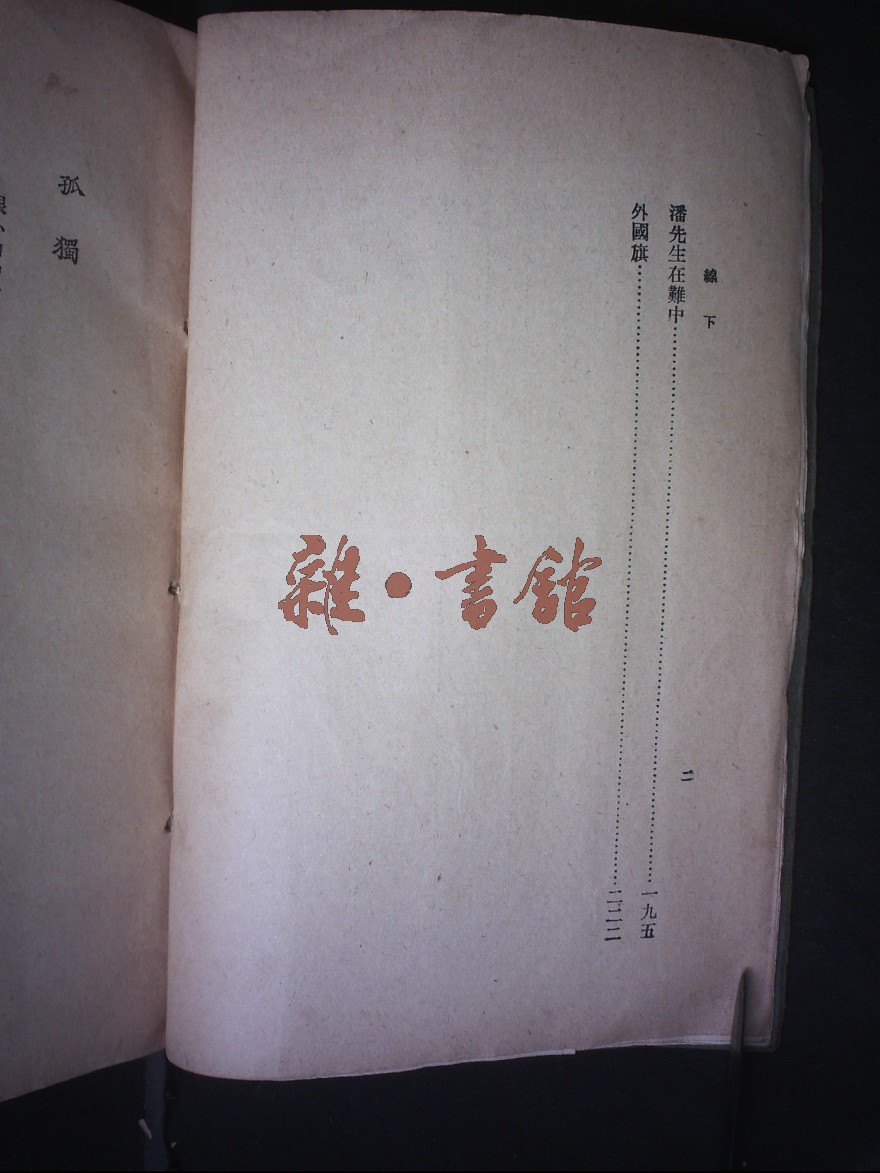 線下
二
潘先生在難中…………一九五
外國旗…………二二二
雜•書館
孤獨